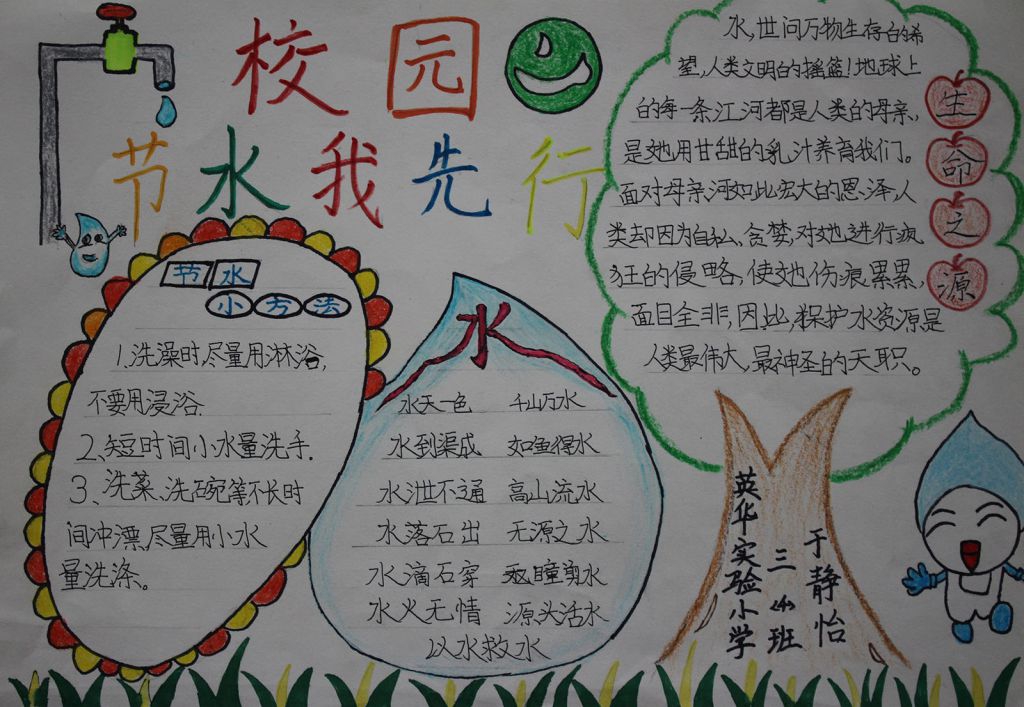 校园
节水我先行
节水
小方法
1.洗澡时尽量用淋浴,
不要用浸浴.
2、短时间小水量洗手.
3、洗菜、洗碗等,不长时
间冲漂、尽量用小水
量洗涤。
水
水天一色 千山万水
水到渠成 如鱼得水
水泄不通 高山流水
水落石出 无源之水
水滴石穿
水火无情 源头活水
以水救水
生命之源
水,世间万物生存的希
望,人类文明的摇篮!地球上
的每一条江河都是人类的母亲,
是她用甘甜的乳汁养育我们。
面对母亲河如此宏大的恩泽,人
类却因为自私、贪婪,对她进行疯
狂的侵略,使她伤痕累累,
面目全非,因此,保护水资源是
人类最伟大,最神圣的天职。
英华实验小学
三
班
于静怡